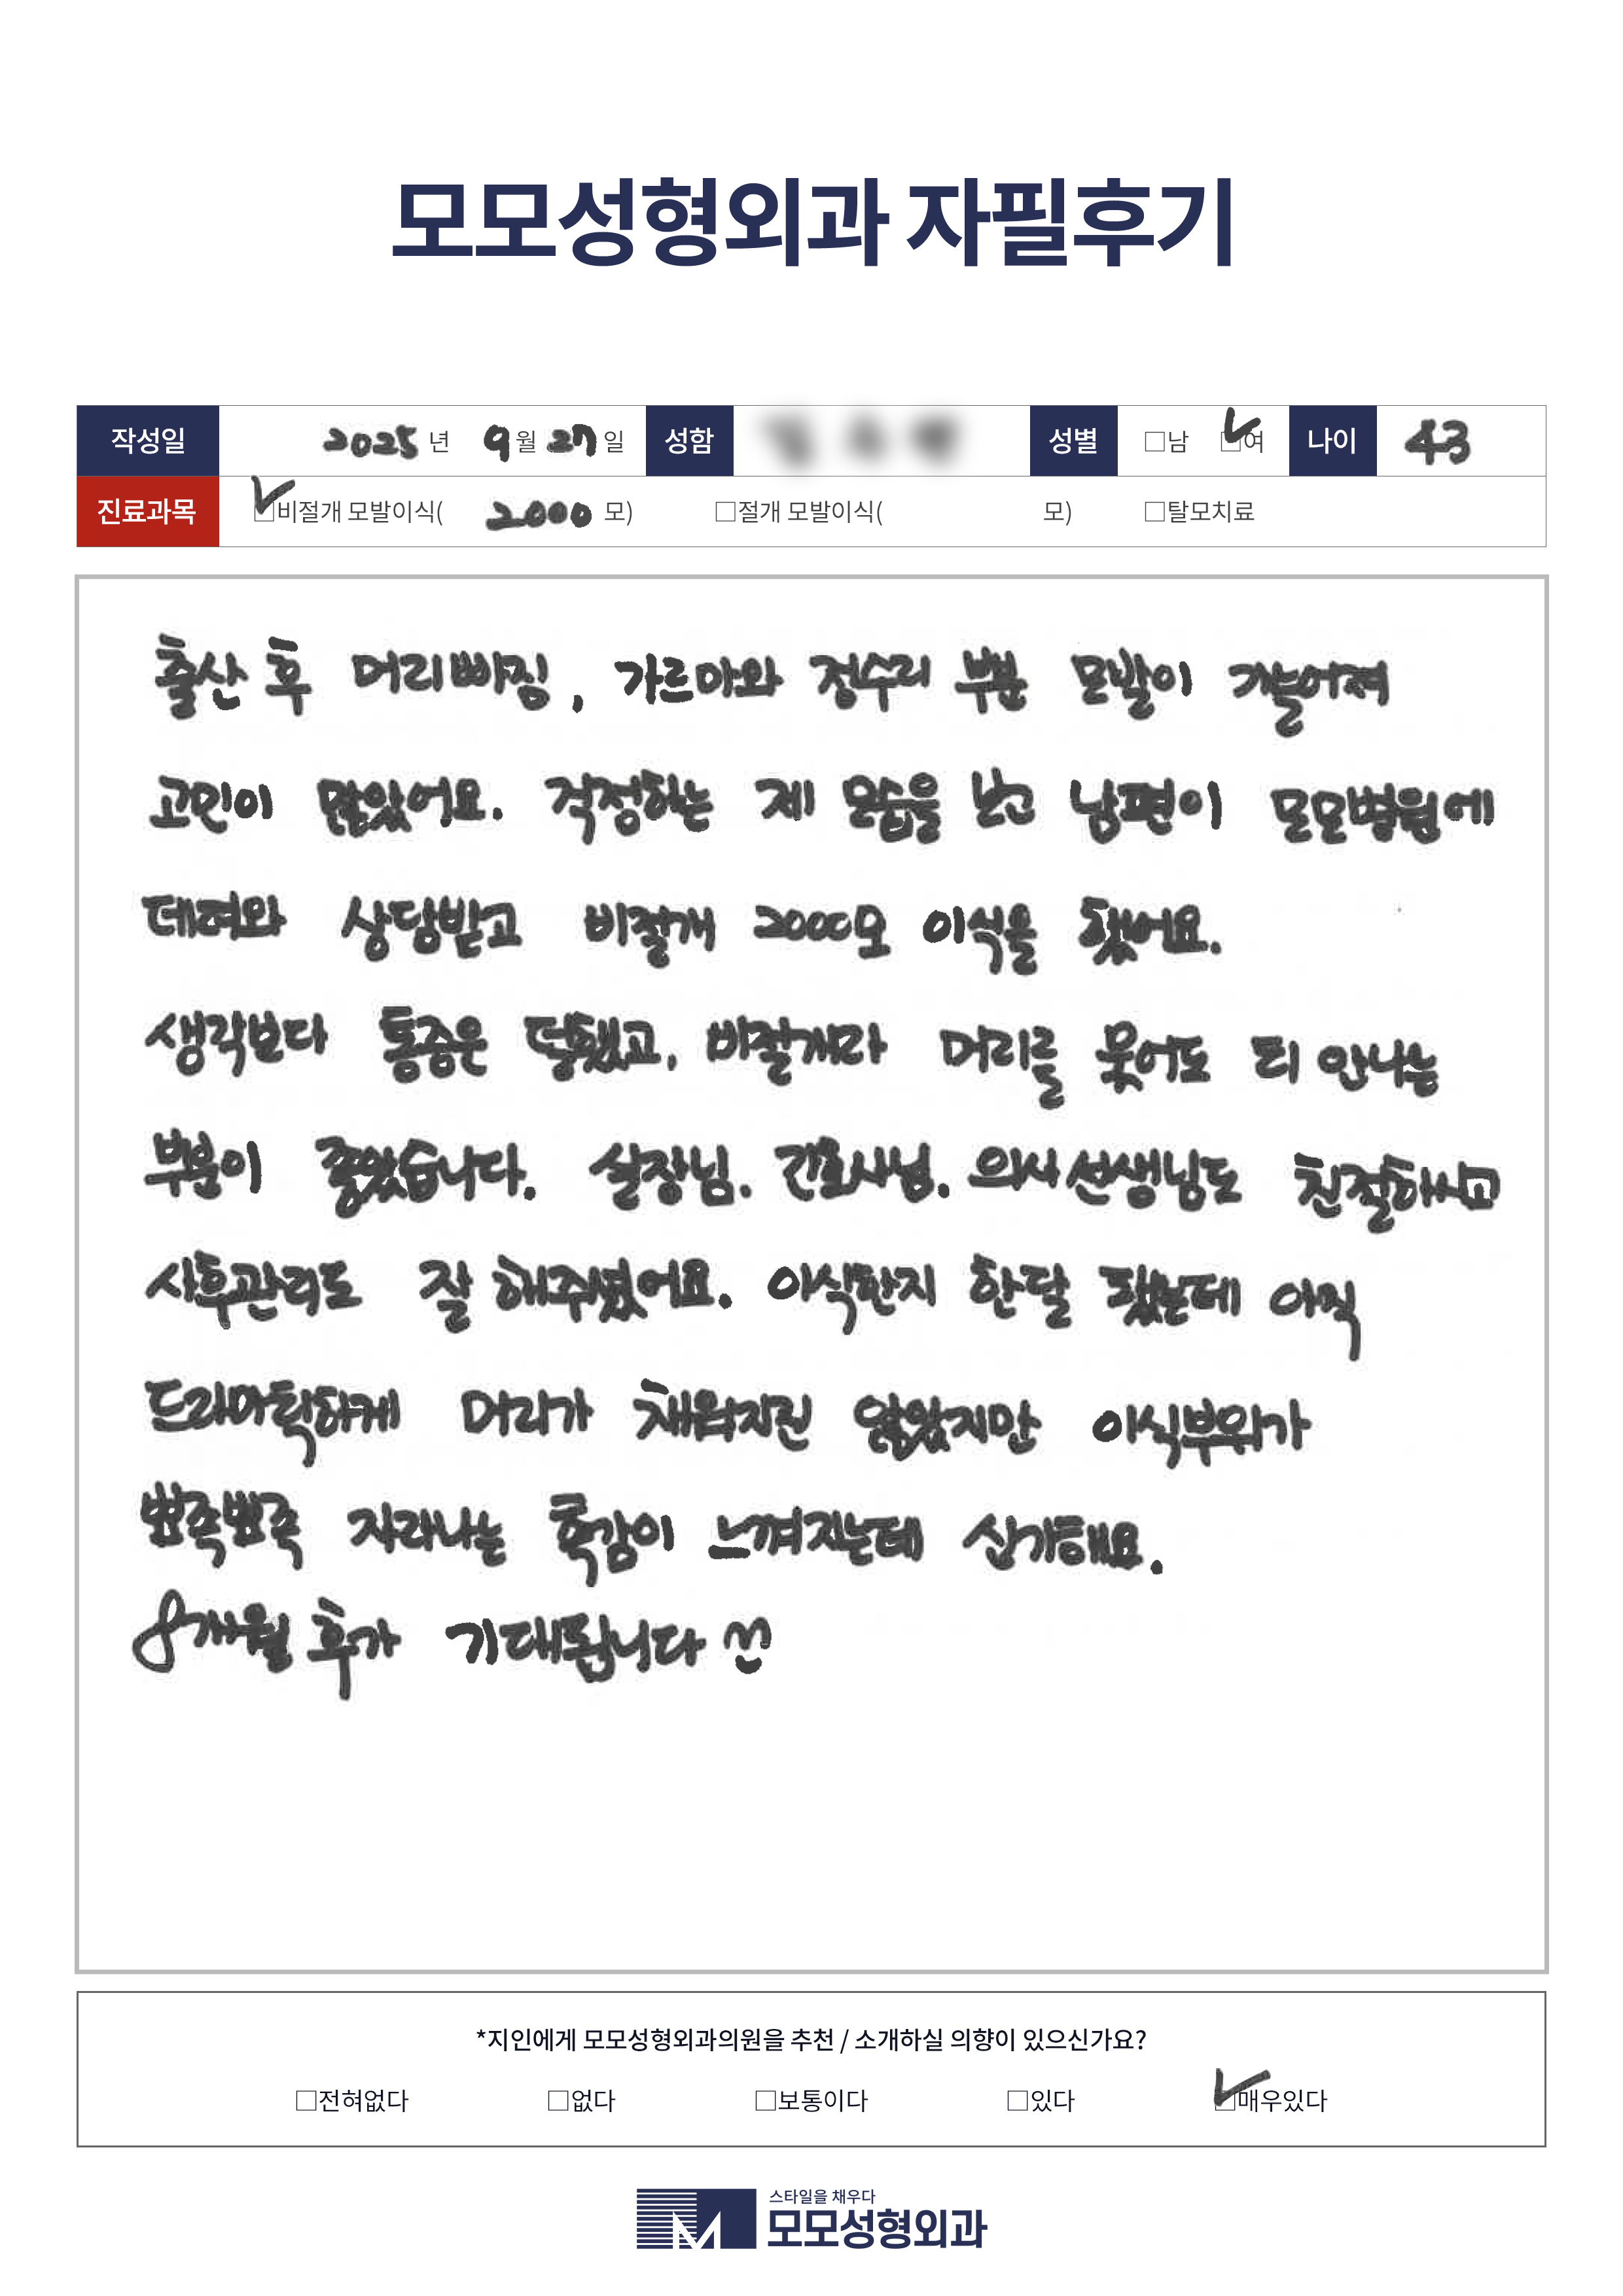 모모성형외과 자필후기
작성일 2025 년 9 월 27 일 성함 성별 □남 ☑여 나이 43
진료과목 ☑비절개 모발이식( 2000 모) □절개 모발이식( 모) □탈모치료
출산 후 머리빠짐, 가르마와 정수리 부분 모발이 가늘어져
고민이 많았어요. 걱정하는 제 모습을 보고 남편이 모모병원에
데려와 상담받고 비절개 2000모 이식을 했어요.
생각보다 통증은 덜했고, 비절개라 머리를 묶어도 티 안나는
부분이 좋았습니다. 실장님. 간호사님. 의사선생님도 친절하시고
사후관리도 잘 해주셨어요. 이식한지 한달 됐는데 아직
드라마틱하게 머리가 채워지진 않았지만 이식부위가
뾰족뾰족 자라나는 촉감이 느껴지는데 신기해요.
8개월 후가 기대됩니다 ^^
*지인에게 모모성형외과의원을 추천 / 소개하실 의향이 있으신가요?
□전혀없다 □없다 □보통이다 □있다 ☑매우있다
스타일을 채우다
모모성형외과